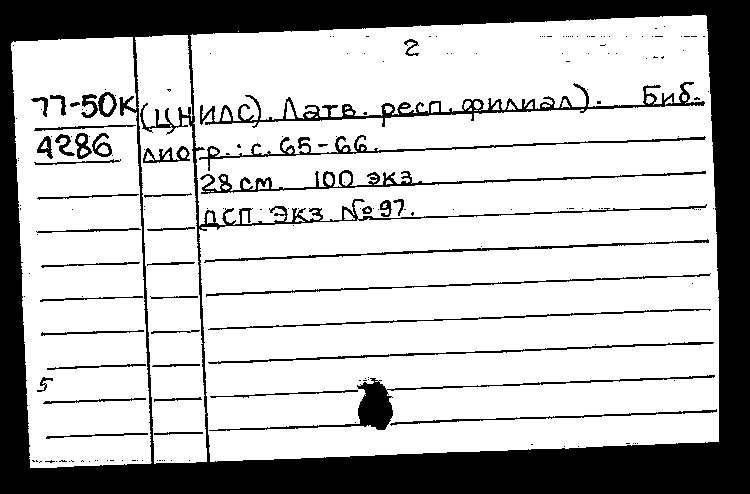 2
77-50к (ЦНИЛС). Латв. респ. филиал). Биб-
4286 лиогр.: с. 65-66.
28 см. 100 экз.
ДСП. Экз. № 97.
5